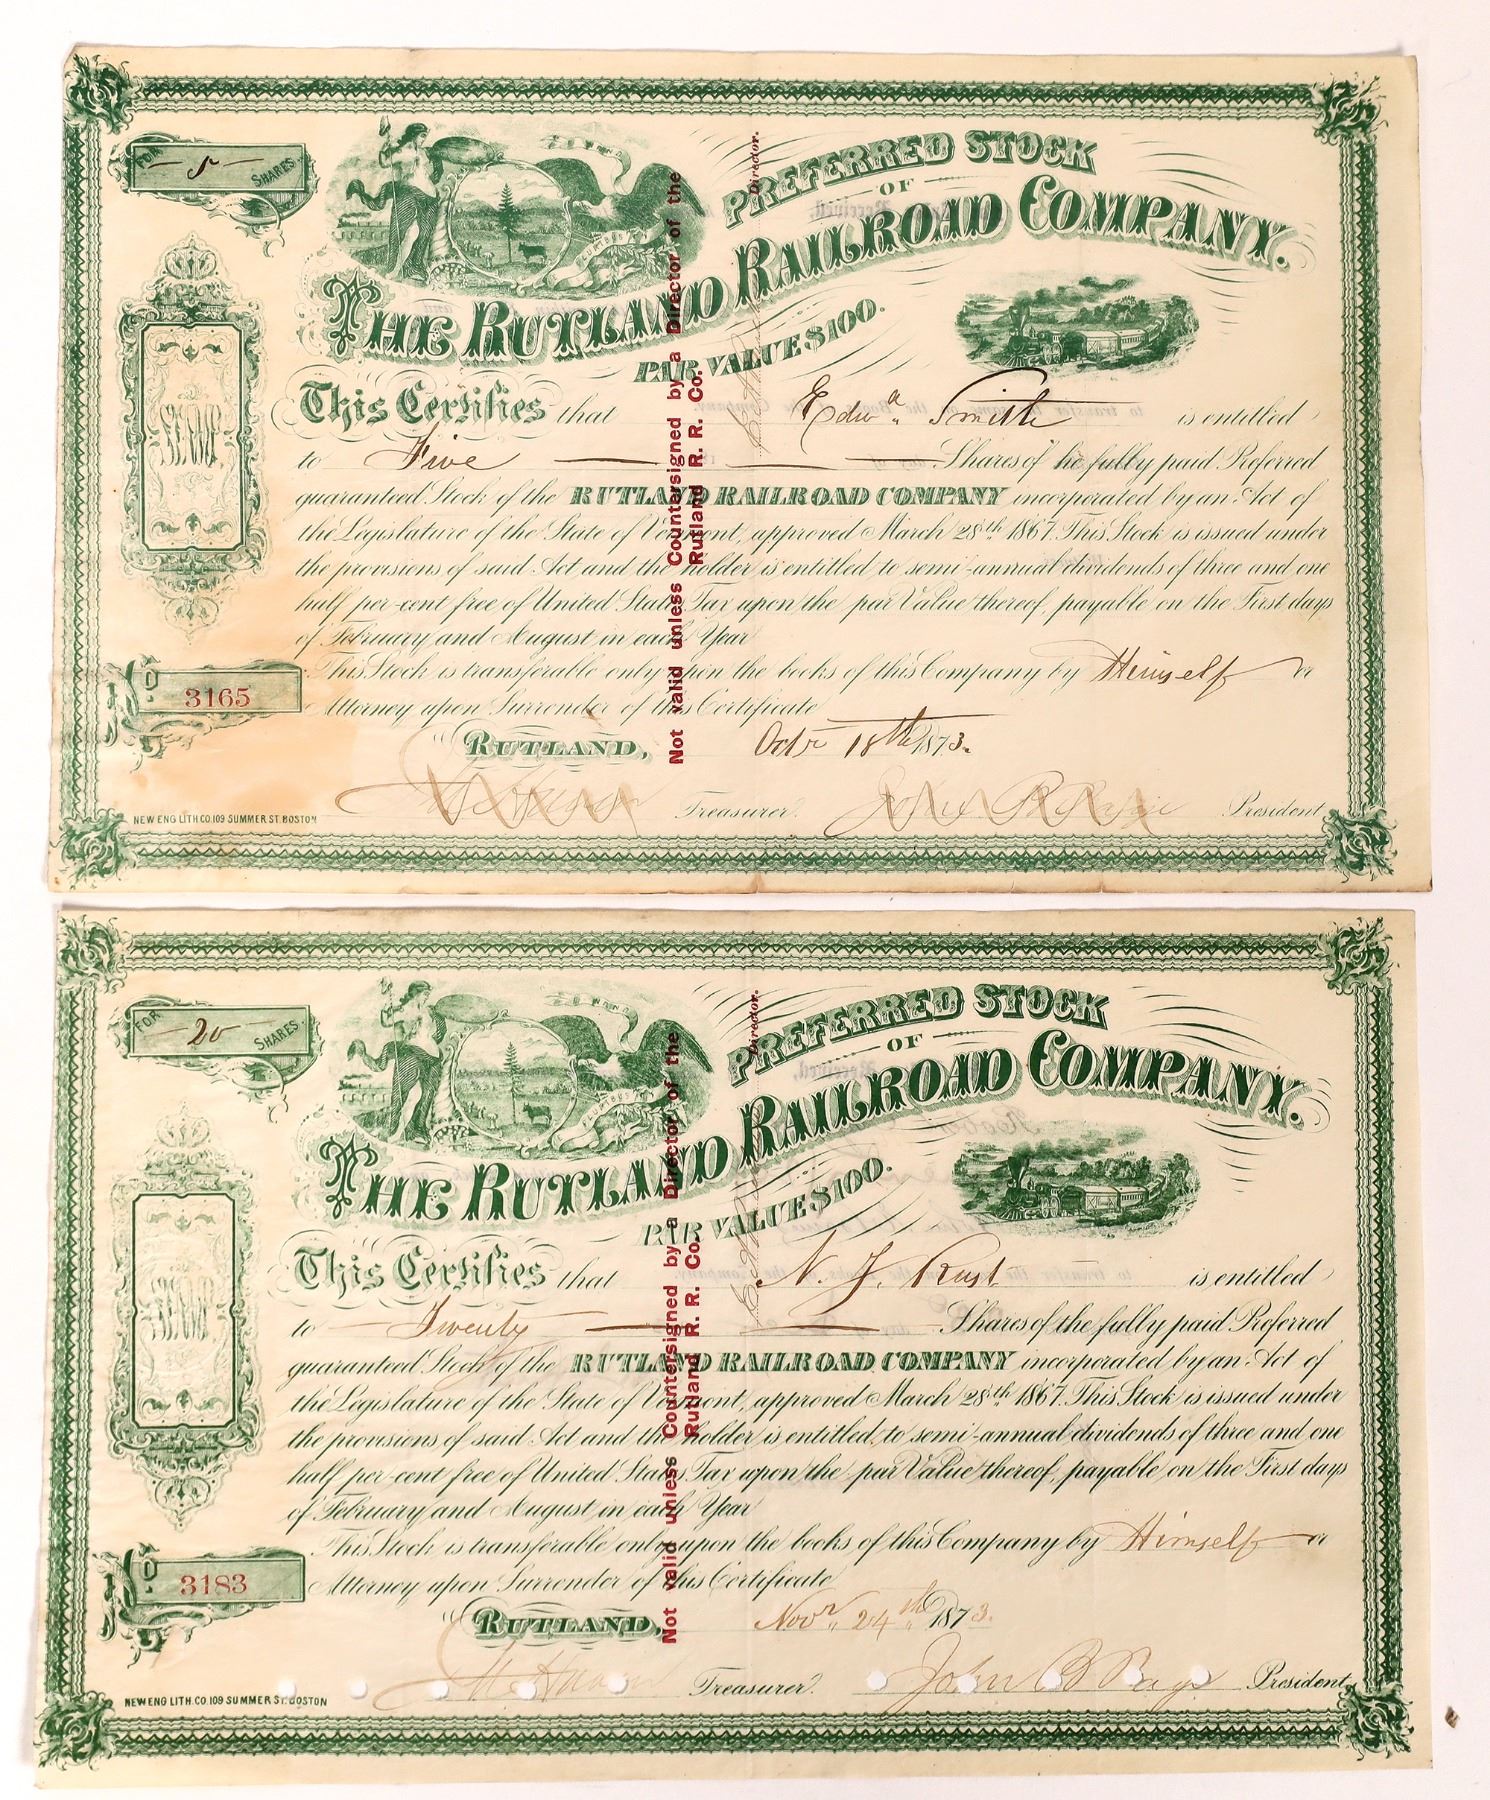 FOR
- 5 -
SHARES
PREFERRED STOCK
OF
THE RUTLAND RAILROAD COMPANY.
PAR VALUE $100.
This Certifies that Edwd. Smith is entitled
to Five Shares of the fully paid Preferred
guaranteed Stock of the RUTLAND RAILROAD COMPANY incorporated by an Act of
the Legislature of the State of Vermont, approved March 28th 1867. This Stock is issued under
the provisions of said Act and the holder is entitled to semi-annual dividends of three and one
half per-cent free of United States Tax upon the par Value thereof, payable on the First days
of February and August in each Year
This Stock is transferable only upon the books of this Company by Himself or
Attorney upon Surrender of this Certificate
3165
RUTLAND, Octr 18th 1873.
Treasurer. President
NEW ENG LITH. CO. 109 SUMMER ST. BOSTON
Not valid unless Countersigned by a Director of the
Rutland R. R. Co.
Director.
FOR
- 20
SHARES
PREFERRED STOCK
OF
THE RUTLAND RAILROAD COMPANY.
PAR VALUE $100.
This Certifies that N. J. Rust is entitled
to Twenty Shares of the fully paid Preferred
guaranteed Stock of the RUTLAND RAILROAD COMPANY incorporated by an Act of
the Legislature of the State of Vermont, approved March 28th 1867. This Stock is issued under
the provisions of said Act and the holder is entitled to semi-annual dividends of three and one
half per-cent free of United States Tax upon the par Value thereof, payable on the First days
of February and August in each Year
This Stock is transferable only upon the books of this Company by Himself or
Attorney upon Surrender of this Certificate
3183
RUTLAND, Novr. 24th 1873.
Treasurer. John B Page President
NEW ENG LITH. CO. 109 SUMMER ST. BOSTON
Not valid unless Countersigned by a Director of the
Rutland R. R. Co.
Director.